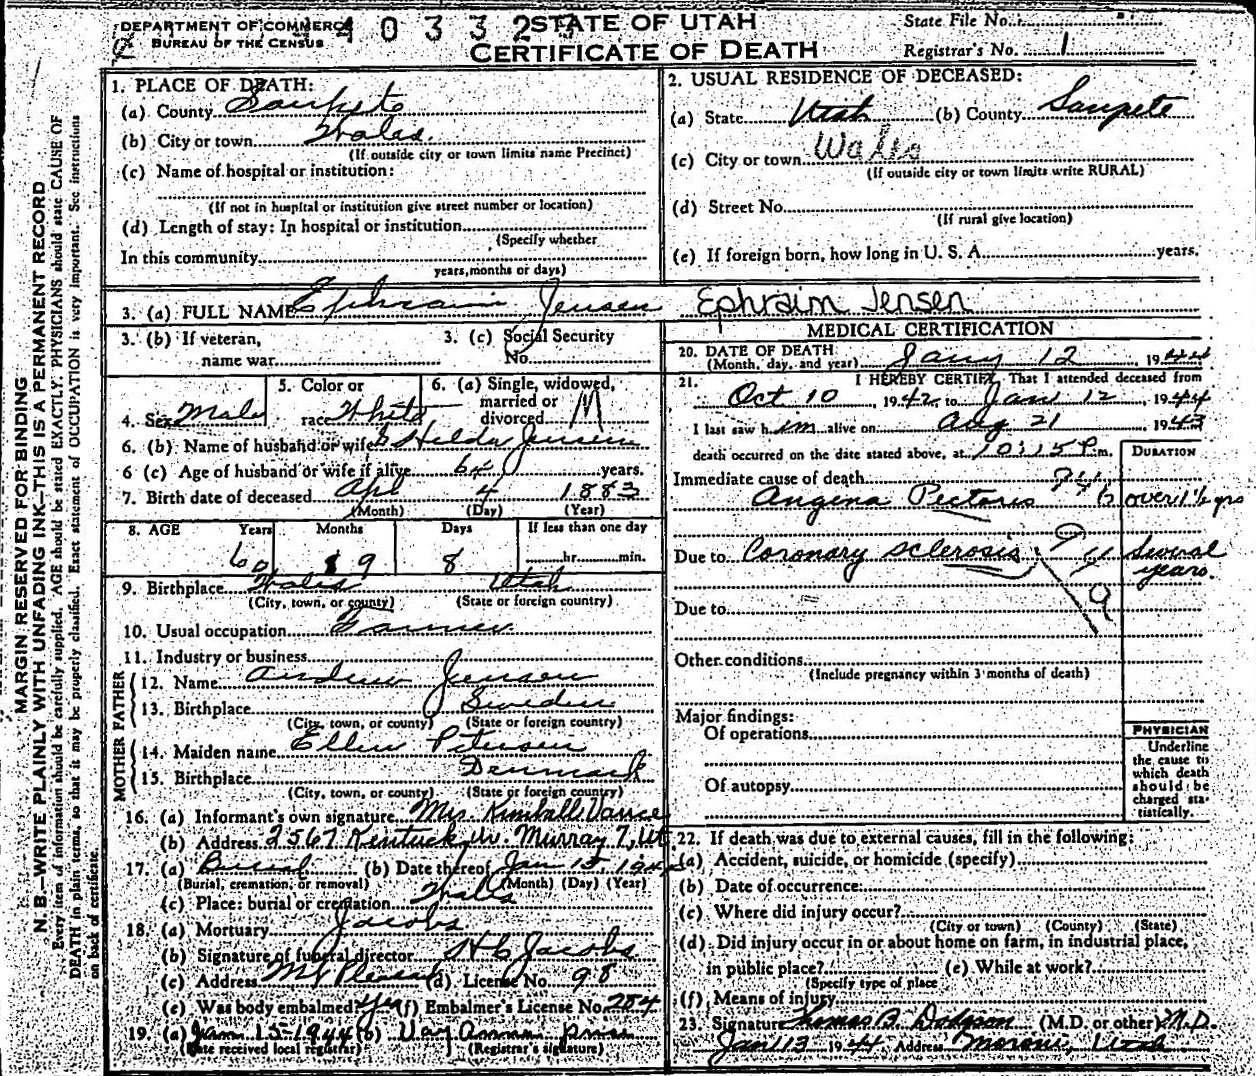 DEPARTMENT OF COMMERCE
BUREAU OF THE CENSUS
STATE OF UTAH
CERTIFICATE OF DEATH
State File No.
Registrar's No. 1
MARGIN RESERVED FOR BINDING
N. B.—WRITE PLAINLY WITH UNFADING INK—THIS IS A PERMANENT RECORD
Every item of information should be carefully supplied. AGE should be stated EXACTLY. PHYSICIANS should state CAUSE OF
DEATH in plain terms, so that it may be properly classified. Exact statement of OCCUPATION is very important. See instructions
on back of certificate.
1. PLACE OF DEATH:
(a) County Sanpete
(b) City or town Wales.
(If outside city or town limits name Precinct)
(c) Name of hospital or institution:
(If not in hospital or institution give street number or location)
(d) Length of stay: In hospital or institution
(Specify whether
In this community
years, months or days)
2. USUAL RESIDENCE OF DECEASED:
(a) State Utah (b) County Sanpete
(c) City or town Wales
(If outside city or town limits write RURAL)
(d) Street No.
(If rural give location)
(e) If foreign born, how long in U. S. A. years.
3. (a) FULL NAME Ephraim Jensen Ephraim Jensen
3. (b) If veteran, name war
3. (c) Social Security No.
4. Sex Male
5. Color or race White
6. (a) Single, widowed, married or divorced M
6. (b) Name of husband or wife Hilda Jensen
6 (c) Age of husband or wife if alive 64 years.
7. Birth date of deceased Apl 4 1883
(Month) (Day) (Year)
8. AGE Years Months Days If less than one day
60 9 8 hr. min.
9. Birthplace Wales Utah
(City, town, or county) (State or foreign country)
10. Usual occupation Farmer
11. Industry or business
FATHER
12. Name Andrew Jensen
13. Birthplace Sweden
(City, town, or county) (State or foreign country)
MOTHER
14. Maiden name Ellen Petersen
15. Birthplace Denmark
(City, town, or county) (State or foreign country)
16. (a) Informant's own signature Mrs. Kimball Vance
(b) Address 2567 Kentucky Av. Murray 7, Ut
17. (a) Burial (b) Date thereof Jan 15, 194
(Burial, cremation, or removal) (Month) (Day) (Year)
(c) Place: burial or cremation Wales
18. (a) Mortuary Jacobs
(b) Signature of funeral director H C Jacobs
(c) Address Mt Pleasant (d) License No. 98
(e) Was body embalmed? Yes (f) Embalmer's License No. 284
19. (a) Jan 15-1944 (b)
(Date received local registrar) (Registrar's signature)
MEDICAL CERTIFICATION
20. DATE OF DEATH Jany 12, 1944
(Month, day, and year)
21. I HEREBY CERTIFY, That I attended deceased from
Oct 10, 1942, to Jan 12, 1944
I last saw him alive on Aug 21 1943
death occurred on the date stated above, at 10:15 P. m.
DURATION
Immediate cause of death
Angina Pectoris over 1 ½ yrs
Due to Coronary sclerosis Several
years.
Due to
Other conditions
(Include pregnancy within 3 months of death)
Major findings:
Of operations
Of autopsy
PHYSICIAN
Underline
the cause to
which death
should be
charged sta-
tistically.
22. If death was due to external causes, fill in the following:
(a) Accident, suicide, or homicide (specify)
(b) Date of occurrence:
(c) Where did injury occur?
(City or town) (County) (State)
(d) Did injury occur in or about home on farm, in industrial place,
in public place? (e) While at work?
(Specify type of place
(f) Means of injury
23. Signature Thomas B. Dodgson (M.D. or other) M.D.
Jan 13 1944 Address Moroni, Utah